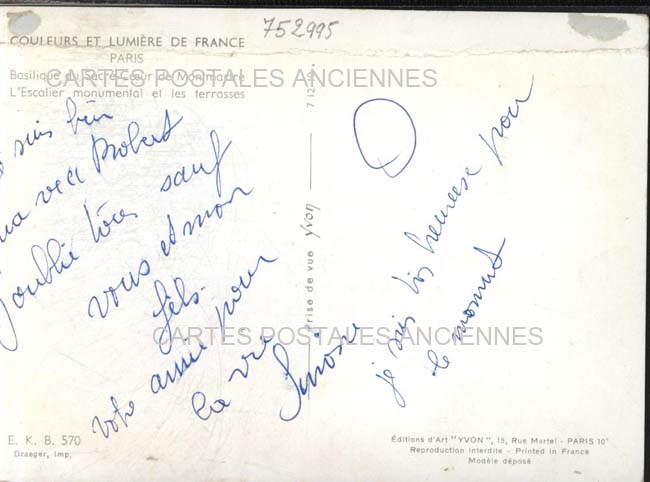 752995
COULEURS ET LUMIÈRE DE FRANCE
PARIS
Basilique du Sacré-Cœur de Montmartre
L'Escalier monumental et les terrasses
CARTES POSTALES ANCIENNES
suis bien
avec Robert
J'oublie tous sauf
vous et mon
fils.
votre amie pour
la vie
Simone
je suis très heureuse pour
le moment
prise de vue yvon
CARTES POSTALES ANCIENNES
E. K. B. 570
Draeger, imp.
Éditions d'Art "YVON", 15, Rue Martel - PARIS 10e
Reproduction interdite - Printed in France
Modèle déposé